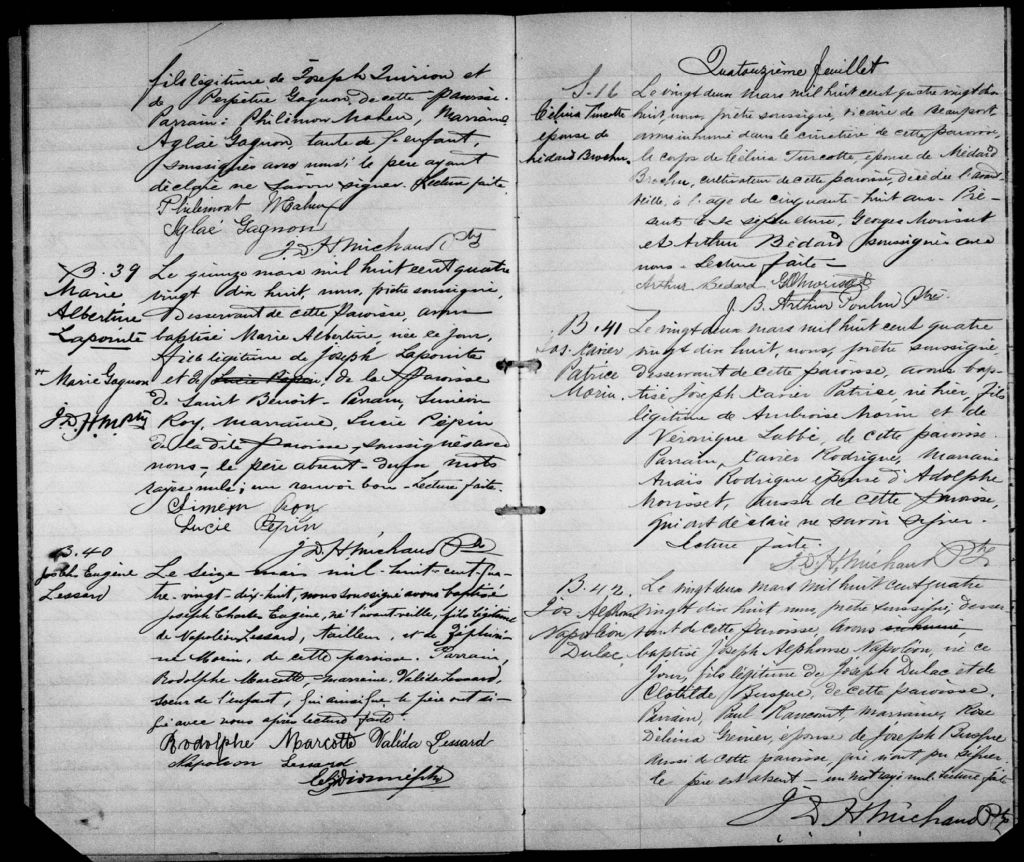 fils légitime de Joseph Quirion et
de Perpétue Gagnon, de cette paroisse.
Parrain: Philémon Maheu, Marraine
Aglaé Gagnon, tante de l'enfant,
soussignés avec nous; le père ayant
déclaré ne savoir signer. Lecture faite.
Philémont Maheu
Aglaé Gagnon
J. D. H. Michaud Ptre
B. 39
Marie
Albertine
Lapointe
Marie Gagnon
J. D. H. M. Ptre
Le quinze mars mil huit cent quatre
vingt dix huit, nous, prêtre soussigné,
desservant de cette paroisse, avons
baptisé Marie Albertine, née ce jour,
fille légitime de Joseph Lapointe
et de Lucie Pepin, de la Paroisse
de Saint Benoit. Parrain, Siméon
Roy, Marraine, Lucie Pepin
de la dite Paroisse, soussignés avec
nous, le père absent. deux mots
rayés nuls; un renvoi bon. Lecture faite.
Simeon Roy
Lucie Pepin
J. D. H. Michaud Ptre
B. 40
Joseph Eugène
Lessard
Le Seize mars mil-huit-cent-qua-
tre-vingt-dix-huit, nous soussigné avons baptisé
Joseph Charles Eugène, né l'avant veille, fils légitime
de Napoléon Lessard, tailleur, et de Zéphiri-
ne Morin, de cette paroisse. Parrain,
Rodolphe Marcotte, marraine Valida Lessard,
soeur de l'enfant, qui ainsi que le père ont si-
gné avec nous après lecture faite.
Rodolphe Marcotte Valida Lessard
Napoleon Lessard
Quatorzième feuillet
S. 16
Célina Turcotte
épouse de
Médard Brochu
Le vingt deux mars mil huit cent quatre vingt dix
huit, nous, prêtre soussigné, vicaire de Beauport
avons inhumé dans le cimetière de cette paroisse,
le corps de Célina Turcotte, épouse de Médard
Brochu, cultivateur de cette paroisse, décédée l'avant
veille, à l'âge de cinquante-huit ans. Pré-
sents à la sépulture, Georges Morisset
et Arthur Bédard soussignés avec
nous. Lecture faite.
Arthur Bedard G. Morisset
J. B. Arthur Poulin Ptre.
B. 41
Jos. Xavier
Patrice
Morin
Le vingt deux mars mil huit cent quatre
vingt dix huit, nous, prêtre soussigné,
desservant de cette paroisse, avons bap-
tisé Joseph Xavier Patrice, né hier, fils
légitime de Ambroise Morin et de
Véronique Labbé, de cette paroisse.
Parrain, Xavier Rodrigue, Marraine
Anaïs Rodrigue épouse d'Adolphe
Morisset, aussi de cette paroisse,
qui ont déclaré ne savoir signer.
Lecture faite.
J. D. H. Michaud Ptre
B. 42
Jos. Alphonse
Napoléon
Dulac
Le vingt deux mars mil huit cent quatre
vingt dix huit nous, prêtre soussigné, desser-
vant de cette paroisse avons inhumé,
baptisé Joseph Alphonse Napoléon, né ce
jour, fils légitime de Joseph Dulac et de
Clotilde Busque, de cette paroisse.
Parrain, Paul Rancourt, marraine, Rose
Délima Grenier, épouse de Joseph Busque
aussi de cette paroisse, qui n'ont pu signer.
le père est absent - un mot rayé nul. Lecture faite
J. D. H. Michaud Ptre